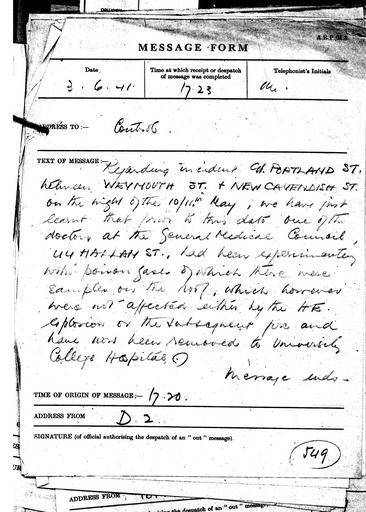 A.R.P./M.2
MESSAGE FORM
Date
Time at which receipt or despatch of message was completed
Telephonist's Initials
3.6.41.
17.23
ADDRESS TO:—
Control.
TEXT OF MESSAGE:—
Regarding incident Gt. PORTLAND ST.
between WEYMOUTH ST. & NEW CAVENDISH ST.
on the night of the 10/11th May, we have just
learnt that prior to this date one of the
doctors at the General Medical Council,
44 HALLAM ST., had been experimenting
with poison gases of which there were
samples on the roof, which however
were not affected either by the H.E.
explosion or the subsequent fire and
have now been removed to University
College Hospital
Message ends -
TIME OF ORIGIN OF MESSAGE:— 17.20.
ADDRESS FROM D.2.
SIGNATURE (of official authorising the despatch of an "out" message).
549
ADDRESS FROM
the despatch of an "out" message).